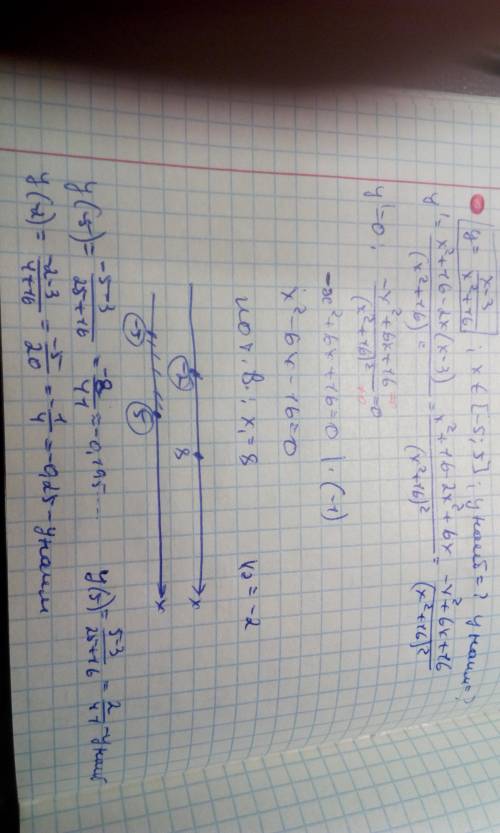 y = x-3 / x²+16 ; x ∈ [-5; 5] ; y наиб = ? y наим = ?
y' = x²+16-2x(x-3) / (x²+16)² = x²+16-2x²+6x / (x²+16)² = -x²+6x+16 / (x²+16)²
y' = 0 ; -x²+6x+16 / (x²+16)² = 0
-x²+6x+16=0 | · (-1)
x²-6x-16=0
по т. В. ; x₁ = 8 x₂ = -2
-2 8 x
-5 5 x
y(-5) = -5-3 / 25+16 = -8 / 41 = -0,195... y(5) = 5-3 / 25+16 = 2 / 41 - y наиб
y(-2) = -2-3 / 4+16 = -5 / 20 = -1 / 4 = -0,25 - y наим